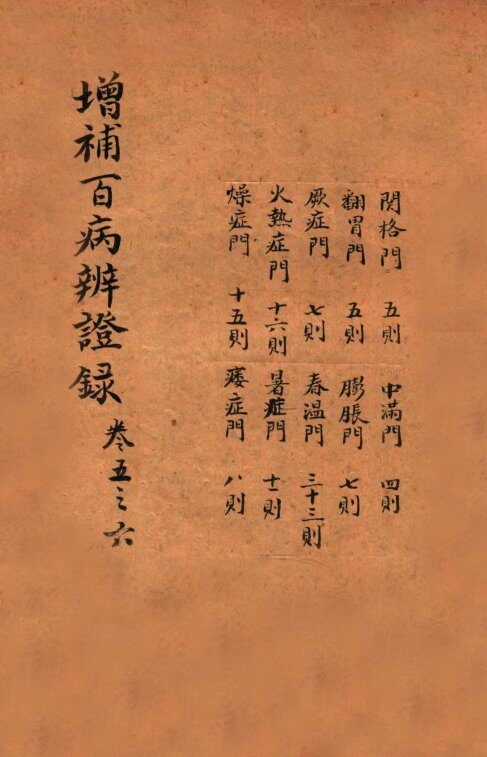 関格門 五則 中滿門 四則
翻胃門 五則 膨脹門 七則
厥症門 七則 春温門 三十三則
火熱症門 十六則 暑症門 十一則
燥症門 十五則 痿症門 八則
增補百病辨證録 卷五之六